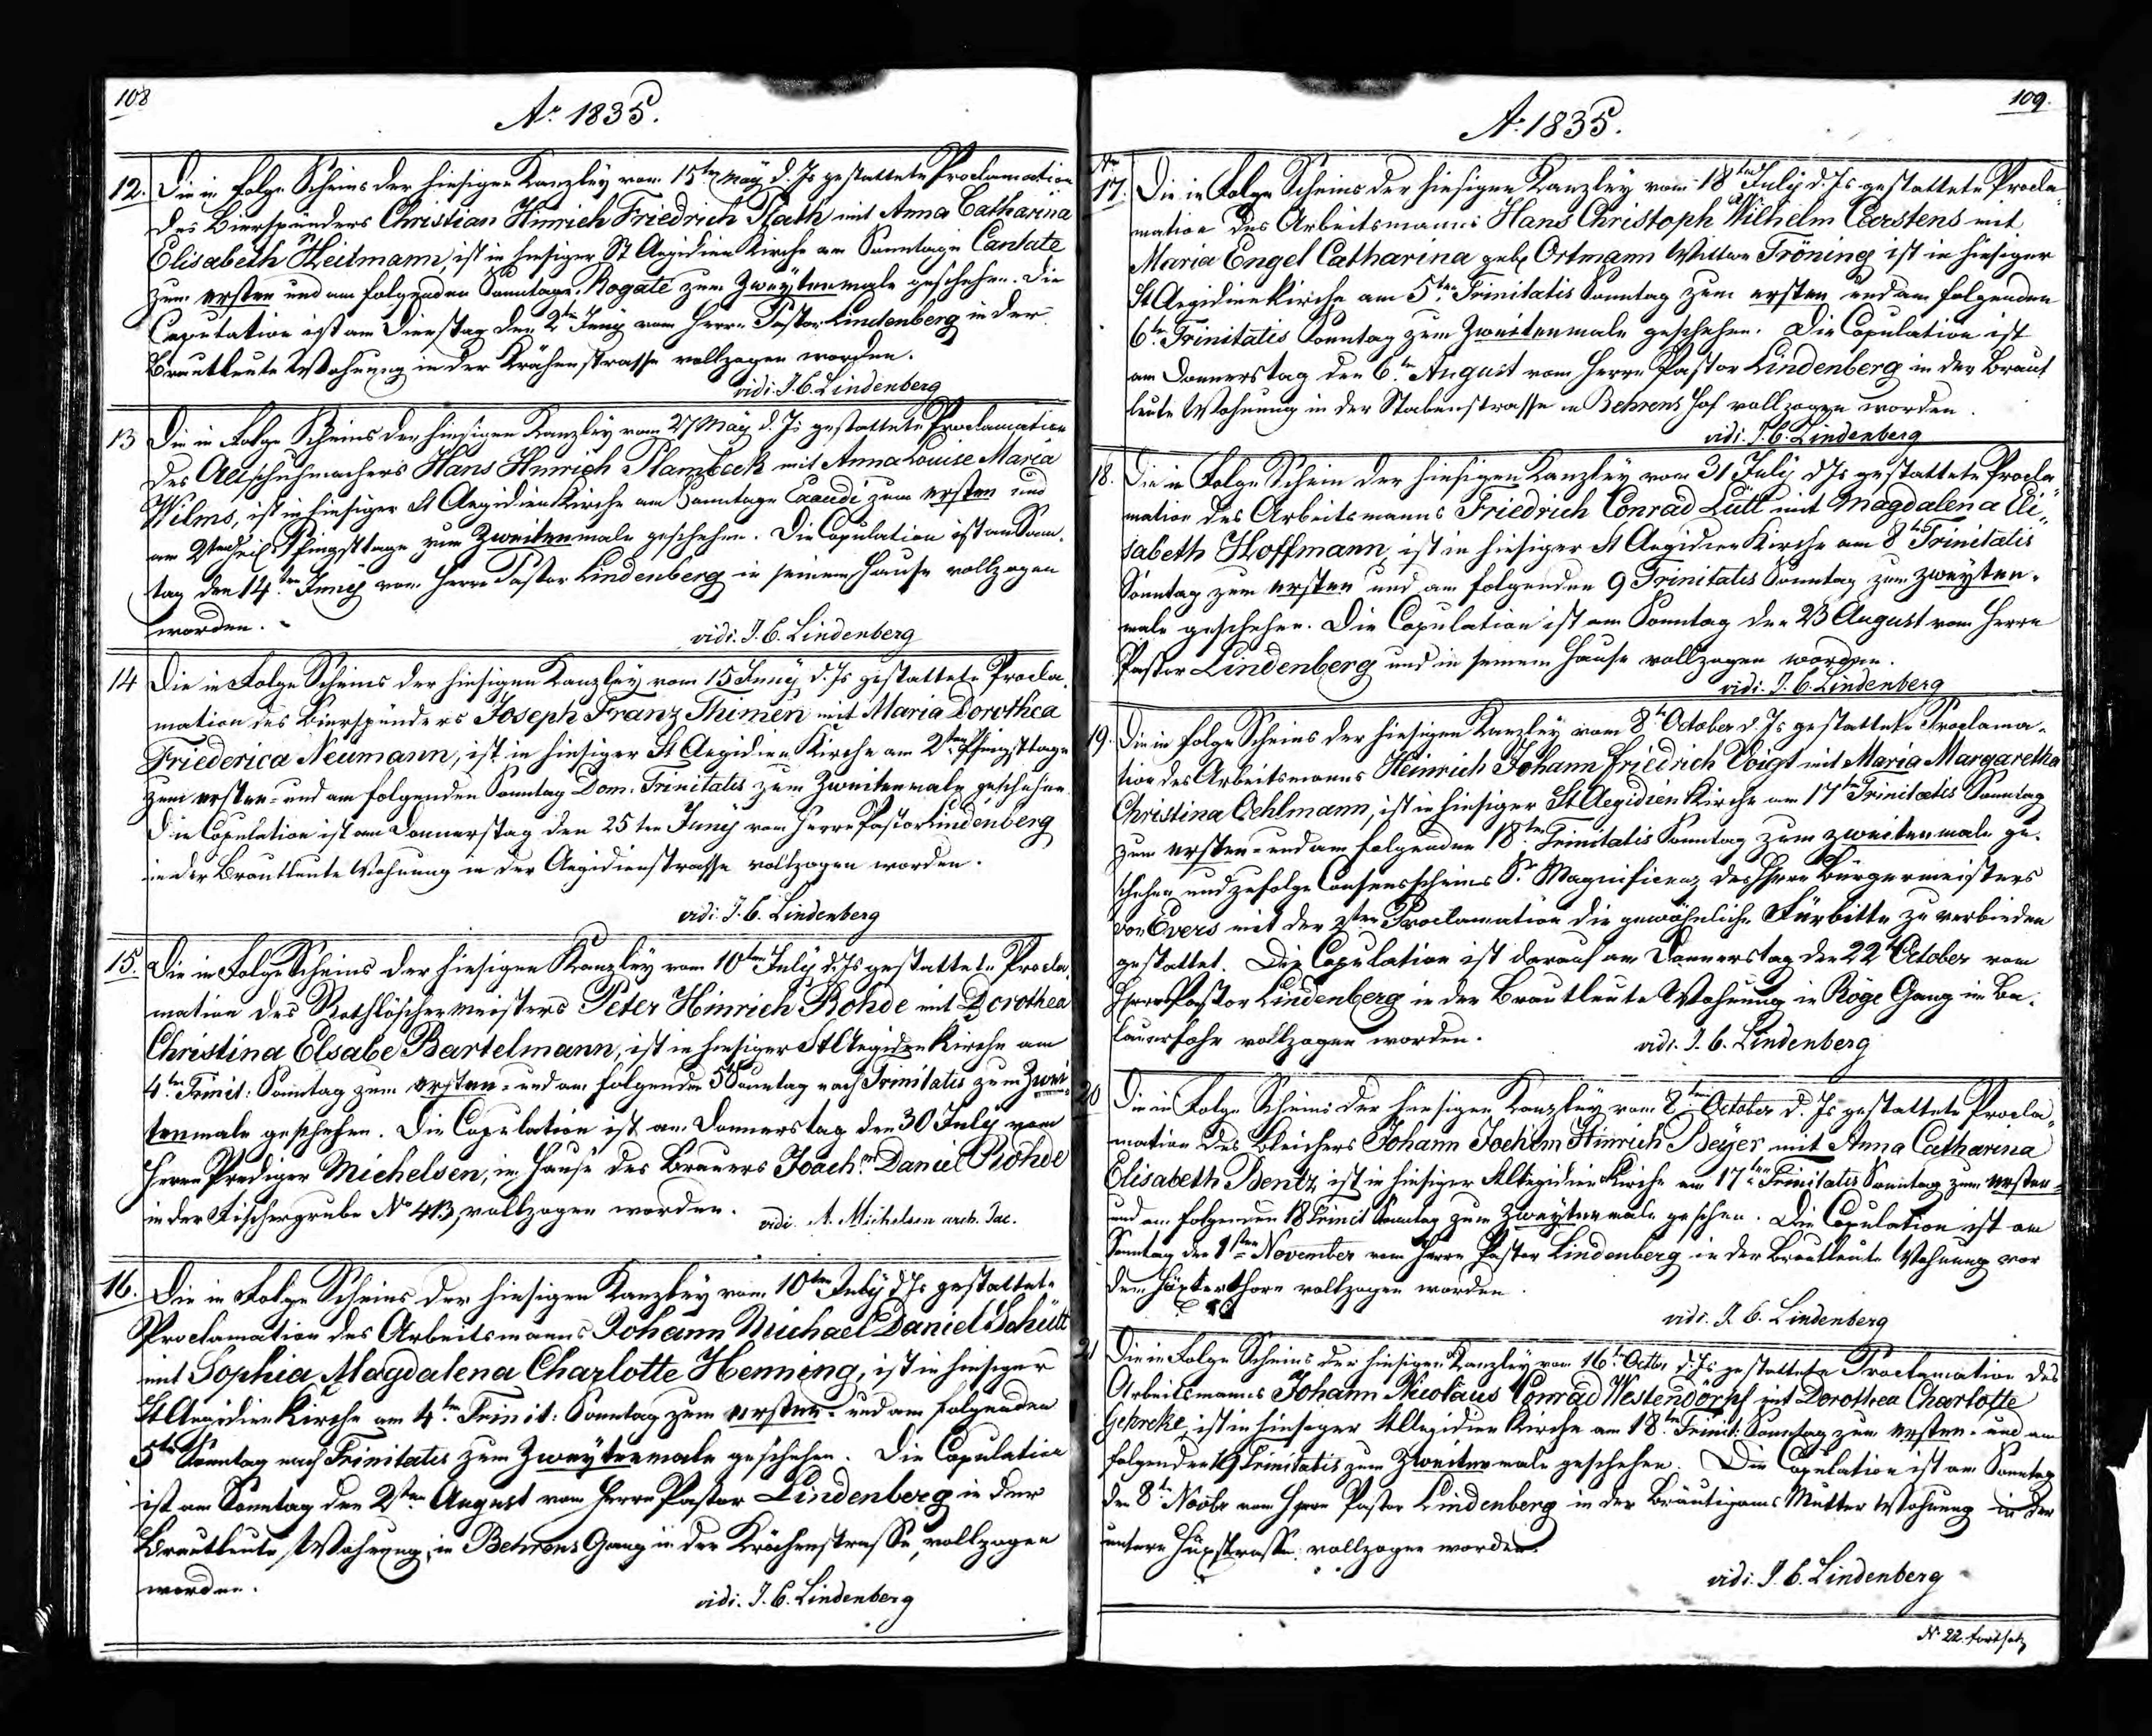 108
Ao. 1835.
12. Die in Folge Scheins der hiesigen Kanzley vom 15ten May d. Js gestattete Proclamation
des Bierspünders Christian Hinrich Friedrich Rath mit Anna Catharina
Elisabeth Heitmann, ist in hiesiger St Aegidien Kirche am Sonntage Cantate
zum ersten und am folgenden Sonntage Rogate zum Zweytenmale geschehen. Die
Copulation ist am Dienstag den 2ten Juny vom Herrn Pastor Lindenberg in der
Brautleute Wohnung in der Krähenstrasse vollzogen worden.
vidi: J. C. Lindenberg
13 Die in Folge Scheins der hiesigen Kanzley vom 27 May d. Js gestattete Proclamation
des Altschuhmachers Hans Hinrich Plambeck mit Anna Louise Maria
Wilms, ist in hiesiger St Aegidien Kirche am Sonntage Exaudi zum ersten und
am 2ten heil. Pfingsttage zum Zweitenmale geschehen. Die Copulation ist am Sonn-
tag den 14ten Juny vom Herrn Pastor Lindenberg in seinem Hause vollzogen
worden.
vidi. J. C. Lindenberg
14 Die in Folge Scheins der hiesigen Kanzley vom 15 Juny d. Js gestattete Procla-
mation des Bierspünders Joseph Franz Thimen mit Maria Dorothea
Friederica Neumann, ist in hiesiger St Aegidien Kirche am 2ten Pfingsttage
zum ersten- und am folgenden Sonntag Dom. Trinitatis zum Zweitenmale geschehen
Die Copulation ist am Donnerstag den 25ten Juny vom Herrn Pastor Lindenberg
in der Brautleute Wohnung in der Aegidienstrasse vollzogen worden.
vidi: J. C. Lindenberg
15. Die in Folge Scheins der hiesigen Kanzley vom 10ten July d. Js gestattete Procla-
mation des Rothlöschermeisters Peter Hinrich Rohde mit Dorothea
Christina Elsabe Bartelmann, ist in hiesiger St Aegidien Kirche am
4ten Trinit: Sonntag zum ersten- und am folgenden 5ten Sonntag nach Trinitatis zum Zwei-
tenmale geschehen. Die Copulation ist am Donnerstag den 30 July vom
Herrn Prediger Michelsen, im Hause des Brauers Joachm Daniel Rohde
in der Fischergrube No 413, vollzogen worden.
vidi. A. Michelsen arch. Jac.
16. Die in Folge Scheins der hiesigen Kanzley vom 10ten July d Js gestattete
Proclamation des Arbeitsmanns Johann Michael Daniel Schütt
mit Sophia Magdalena Charlotte Henning, ist in hiesiger
St Aegidien Kirche am 4ten Trinit: Sonntag zum ersten- und am folgenden
5ten Sonntag nach Trinitatis zum Zweytenmale geschehen. Die Copulation
ist am Sonntag den 2ten August vom Herrn Pastor Lindenberg in der
Brautleute Wohnung, in Behrens Gang in der Krähenstrasse, vollzogen
worden.
vidi. J. C. Lindenberg
109.
A. 1835.
No
17. Die in Folge Scheins der hiesigen Kanzley vom 18ten July d. Js gestattete Procla-
mation des Arbeitsmanns Hans Christoph Wilhelm Carstens mit
Maria Engel Catharina geb. Ortmann Wittwe Fröning ist in hiesiger
St Aegidienkirche am 5ten Trinitatis Sonntag zum ersten und am folgenden
6ten Trinitatis Sonntag zum Zweitenmale geschehen. Die Copulation ist
am Donnerstag den 6ten August vom Herrn Pastor Lindenberg in der Braut
leute Wohnung in der Stabenstrasse in Behrens Hof vollzogen worden.
vidi. J. C. Lindenberg
18. Die in Folge Schein der hiesigen Kanzley vom 31 July d Js gestattete Procla-
mation des Arbeitsmanns Friedrich Conrad Lütt mit Magdalena Eli-
sabeth Hoffmann, ist in hiesiger St Aegidien Kirche am 8ten Trinitatis
Sonntag zum ersten und am folgenden 9 Trinitatis Sonntag zum zweyten-
male geschehen. Die Copulation ist am Sonntag den 23 August vom Herrn
Pastor Lindenberg und in seinem Hause vollzogen worden.
vidi: J. C. Lindenberg
19. Die in Folge Scheins der hiesigen Kanzley vom 8ten October d. Js gestattete Proclama-
tion des Arbeitsmanns Heinrich Johann Friedrich Voigt mit Maria Margaretha
Christina Oehlmann, ist in hiesiger St Aegidien Kirche am 17ten Trinitatis Sonntag
zum ersten- und am folgenden 18ten Trinitatis Sonntag zum zweitenmale ge-
schehen und zufolge Consensscheins Sr Magnificenz des Herrn Bürgermeisters
von Evers mit der 2ten Proclamation die gewöhnliche Fürbitte zu verbinden
gestattet. Die Copulation ist darauf am Donnerstag den 22 October vom
Herrn Pastor Lindenberg in der Brautleute Wohnung in Röge Gang im Ba-
lauerfohr vollzogen worden.
vidi. J. C. Lindenberg
20 Die in Folge Scheins der hiesigen Kanzley vom 8ten October d. Js gestattete Procla-
mation des Bleichers Johann Jochim Hinrich Beyer mit Anna Catharina
Elisabeth Bentz ist in hiesiger St Aegidien Kirche am 17ten Trinitatis Sonntag zum ersten-
und am folgenden 18 Trinit Sonntag zum Zweytenmale geschen. Die Copulation ist am
Sonntag den 1sten November vom Herrn Pastor Lindenberg in der Brautleute Wohnung vor
dem Hüxterthore vollzogen worden.
vidi. J. C. Lindenberg
21 Die in Folge Scheins der hiesigen Kanzley vom 16ten Octbr d. Js gestattete Proclamation des
Arbeitsmanns Johann Nicolaus Conrad Westendörpf mit Dorothea Charlotte
Gehreke, ist in hiesiger St Aegidien Kirche am 18ten Trinit: Sonntag zum ersten- und am
folgenden 19 Trinitatis zum Zweitenmale geschehen. Die Copulation ist am Sonntag
den 8ten Novbr vom Herrn Pastor Lindenberg in der Bräutigams Mutter Wohnung in der
untern Hüxstrasse vollzogen worden.
vidi. J. C. Lindenberg
No 22. Fortsetz